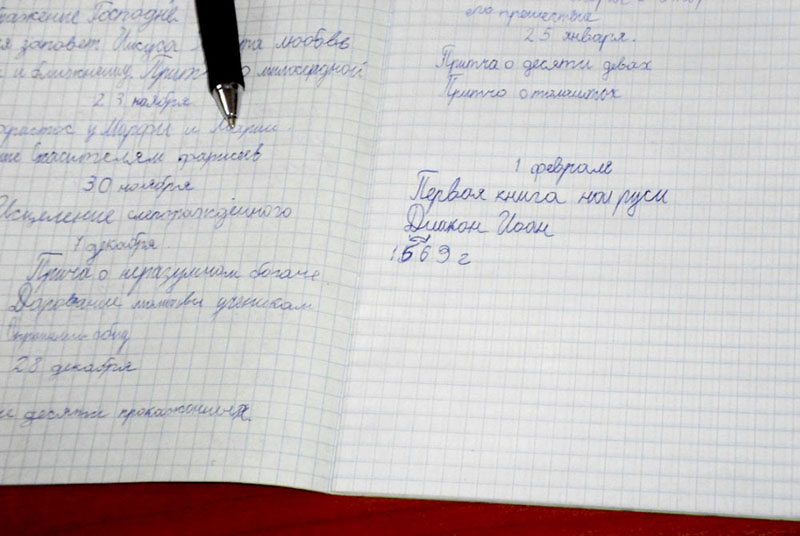 Преображение Господне
заповет Иисуса Христа любовь
и ближнему. Притча о милосердной
23 ноября
Христос у Марфы и Марии.
Спасителям фарисеев
30 ноября
Исцеление слепрождённого
1 декабря
Притча о неразумном богаче
Дарование молитвы ученикам
28 декабря
десяти прокажённых
по пришествие
25 января.
Притча о десяти девах
Притча о талантах
1 февраля
Первая книга на руси
Диакон Иоан
1569 г